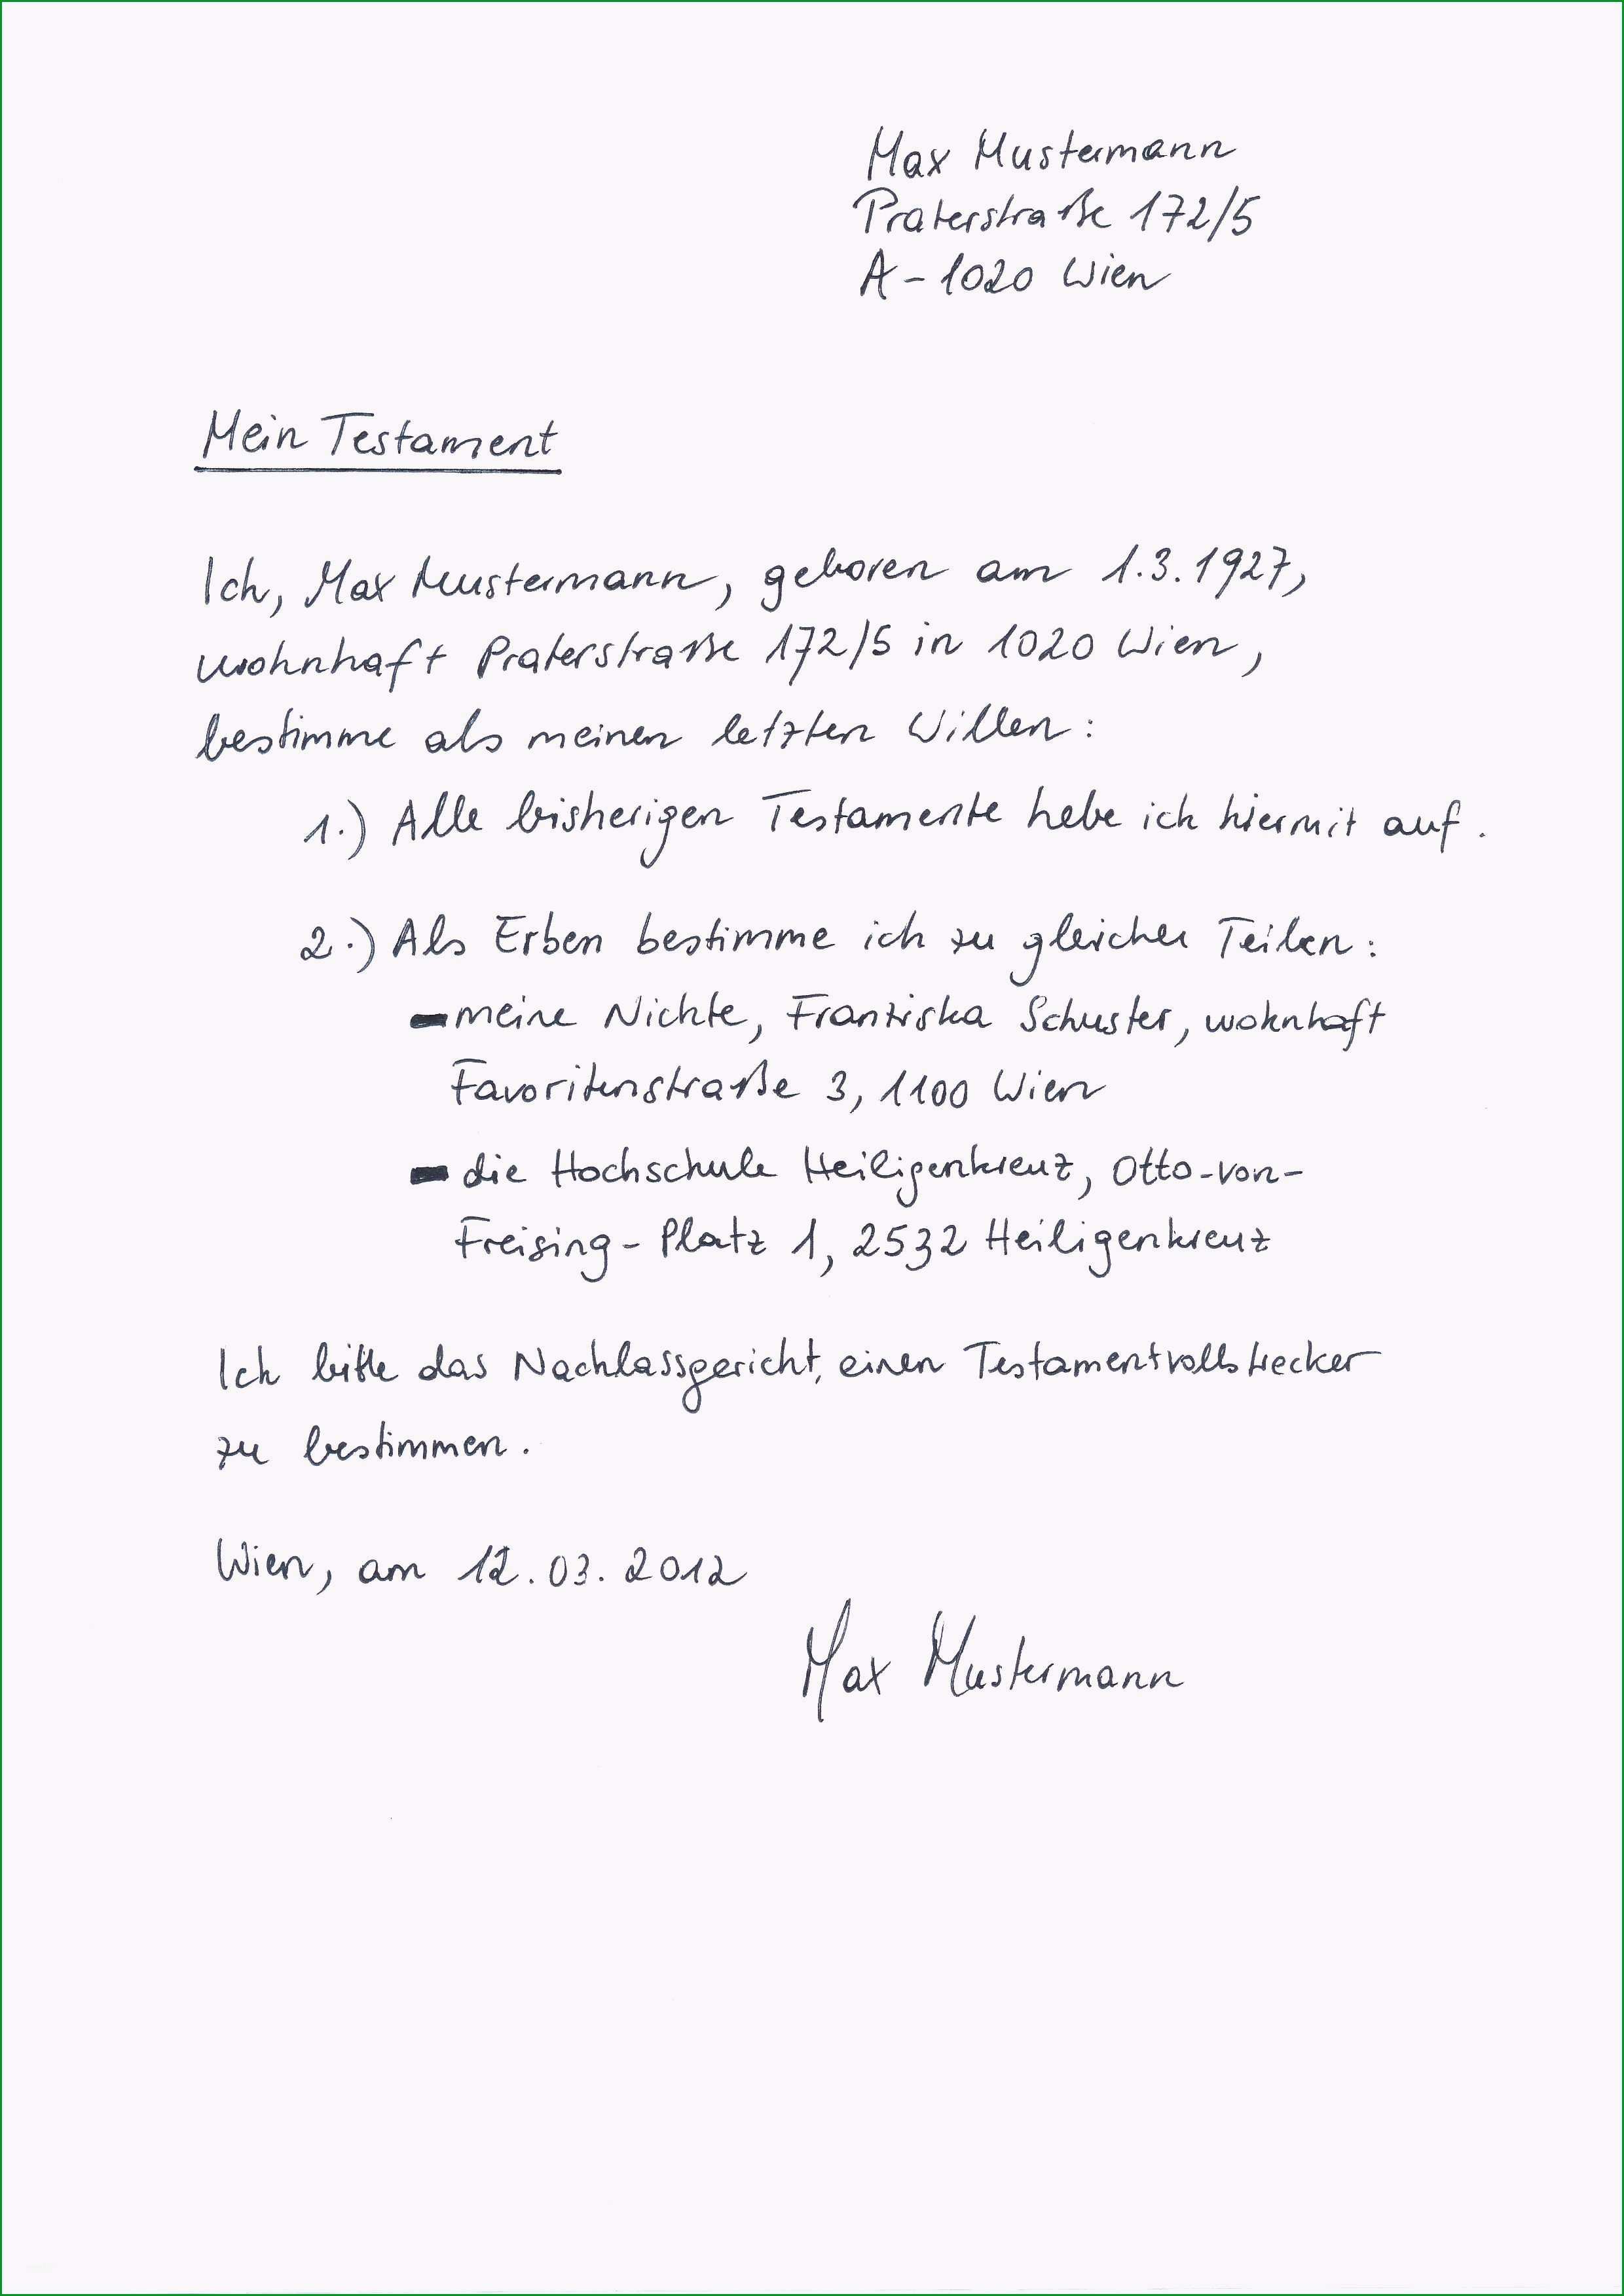 Max Mustermann
Praterstraße 172/5
A - 1020 Wien
Mein Testament
Ich, Max Mustermann, geboren am 1.3.1927,
wohnhaft Praterstraße 172/5 in 1020 Wien,
bestimme als meinen letzten Willen:
1.) Alle bisherigen Testamente hebe ich hiermit auf.
2.) Als Erben bestimme ich zu gleichen Teilen:
- meine Nichte, Franziska Schuster, wohnhaft
Favoritenstraße 3, 1100 Wien
- die Hochschule Heiligenkreuz, Otto-von-
Freising-Platz 1, 2532 Heiligenkreuz
Ich bitte das Nachlassgericht, einen Testamentvollstrecker
zu bestimmen.
Wien, am 12.03.2012
Max Mustermann